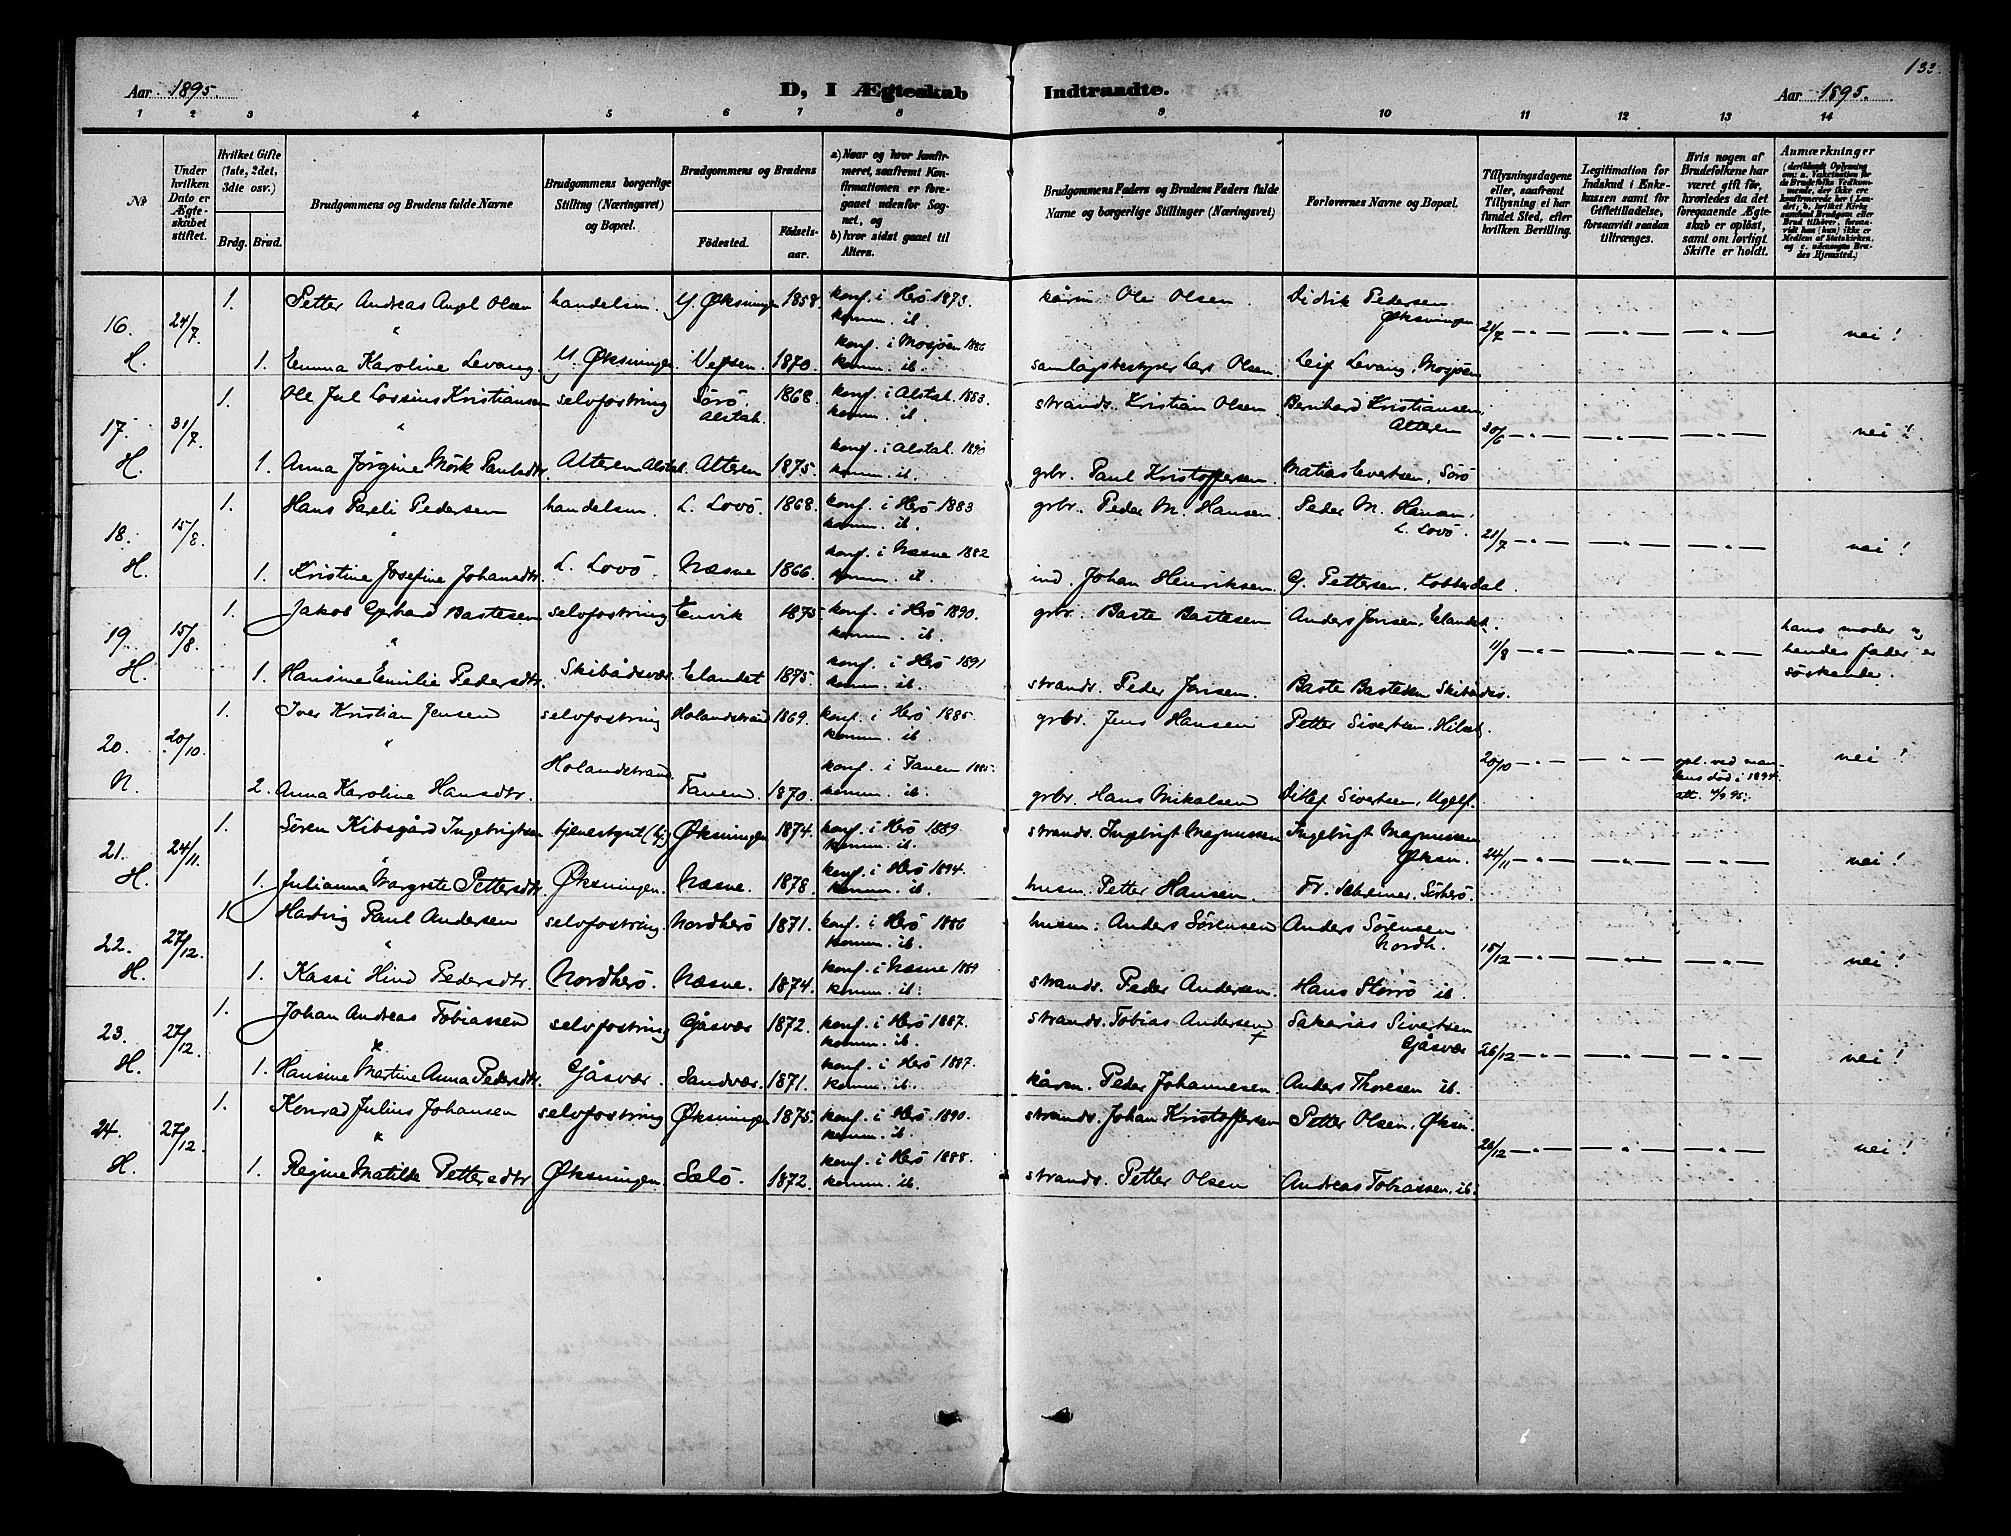 133.
Aar 1895. D, I Ægteskab Indtraadte. Aar 1895.
1 2 3 4 5 6 7 8 9 10 11 12 13 14
No
Under hvilken Dato er Ægteskabet stiftet.
Hvilket Gifte (1ste, 2det, 3die osv.)
Brdg. Brud.
Brudgommens og Brudens fulde Navne
Brudgommens borgerlige Stilling (Næringsvei) og Bopæl.
Brudgommens og Brudens
Fødested. Fødselsaar.
a) Naar og hvor konfirmeret, saafremt Konfirmationen er foregaaet udenfor Sognet, og
b) hvor sidst gaaet til Alters.
Brudgommens Faders og Brudens Faders fulde Navne og borgerlige Stillinger (Næringsvei)
Forlovernes Navne og Bopæl.
Tillysningsdagene eller, saafremt Tillysning ei har fundet Sted, efter hvilken Bevilling.
Legitimation for Indskud i Enkekassen samt for Giftetilladelse, forsaavidt saadan tiltrænges.
Hvis nogen af Brudefolkene har været gift før, hvorledes da det foregaaende Ægteskab er opløst, samt om lovligt Skifte er holdt.
Anmærkninger
16. H. 24/7
1. Petter Andreas Angel Olsen handelsm. Y. Øksningen 1858. konf. i Herø 1873. komm. ib. kårm. Ole Olsen Didrik Pedersen Øksningen 21/7 nei!
1. Emma Karoline Levang Y. Øksningen Vefsen. 1870. konf. i Mosjøen 1886 komm. ib. samlagsbestyrer Lars Olsen. Leif Levang, Mosjøen
17. H. 31/7
1. Ole Jul Lossius Kristiansen selvfostring Sørø Alstah. 1868. konf. i Alstah. 1883. komm. ib. strands. Kristian Olsen Bernhard Kristiansen, Alteren 30/6 nei!
1. Anna Jørgine Mörk Paulsdtr. Alteren Alstah. Alteren 1875. konf. i Alstah. 1890 komm. ib. grbr. Paul Kristoffersen. Matias Evertsen, Sørø
18. H. 15/8.
1. Hans Pareli Pedersen handelsm. L. Lovö 1868. konf. i Herø 1883 komm. ib. grbr. Peder M. Hansen. Peder M. Hansen, L. Lovö. 21/7 nei!
1. Kristine Josefine Johansdtr. L. Lovö. Næsne 1866. konf. i Næsne 1882 komm. ib. ind. Johan Henriksen G. Pettersen. Kobberdal
19. H. 15/8
1. Jakob Gerhard Bastesen selvfostring Envik 1875. konf. i Herø 1890. komm. ib. grbr. Baste Bastesen Anders Jensen, Elandet. 11/8 hans moder og hendes fader er søskende.
1. Hansine Emilie Pedersdtr. Skibådsvær. Elandet 1875. konf. i Herø 1891 komm. ib. strands. Peder Jensen. Baste Bastesen Skibådsv.
20. N. 20/10.
1. Iver Kristian Jensen selvfostring Holandstrand 1869. konf. i Herø 1885. komm. ib. grbr. Jens Hansen Petter Sivertsen, Hilset. 20/10 nei!
2. Anna Karoline Hansdtr. Holandstrand Tanem 1870. konf. i Tanem 1885. komm. ib. grbr. Hans Mikalsen Ditlef Sivertsen, opl. ved mandens død i 1894 att. 4/9 95.
21. H. 24/11.
1. Søren Kibsgård Ingebrigtsen tjenestgut (tj) Øksningen 1874. konf. i Herø 1889. komm. ib. strands. Ingebrigt Magnussen Ingebrigt Magnussen Øksn. 24/11 nei!
1. Julianna Margrete Pettersdtr. Øksningen. Næsne. 1878. konf. i Herø 1894. komm. ib. husm. Petter Hansen. Fr. Sørherø.
22. H. 27/12.
1 Hartvig Paul Andersen selvfostring. Nordherø 1871. konf. i Herø 1886 komm. ib. husm: Anders Sørensen Anders Sørensen Nordh. 15/12 nei!
1. Kassi Hind Pedersdtr. Nordherø. Næsne. 1874. konf. i Næsne 1889 komm. ib. strands. Peder Andersen. Hans Storrø ib.
23. H. 27/12.
1. Johan Andreas Tobiassen selvfostring Gåsvær 1872. konf. i Herø 1887. komm. ib. strands. Tobias Andersen + Sakarias Sivertsen Gåsvær 26/12 nei!
1. Hansine Martine Anna Pedersdtr. Gåsvær. Sandvær. 1871. konf. i Herø 1887. komm. ib. kårm. Peder Johannesen Anders Thoresen ib.
24. H. 27/12.
1. Konrad Julius Johansen selvfostring Øksningen 1875. konf. i Herø 1890. komm. ib. strands. Johan Kristoffersen Petter Olsen. Øksn. 26/12 nei!
1. Regine Matilde Pettersdtr Øksningen. Selö. 1872. konf. i Herø 1888. komm. ib. strands. Petter Olsen Andreas Tobiassen. ib.